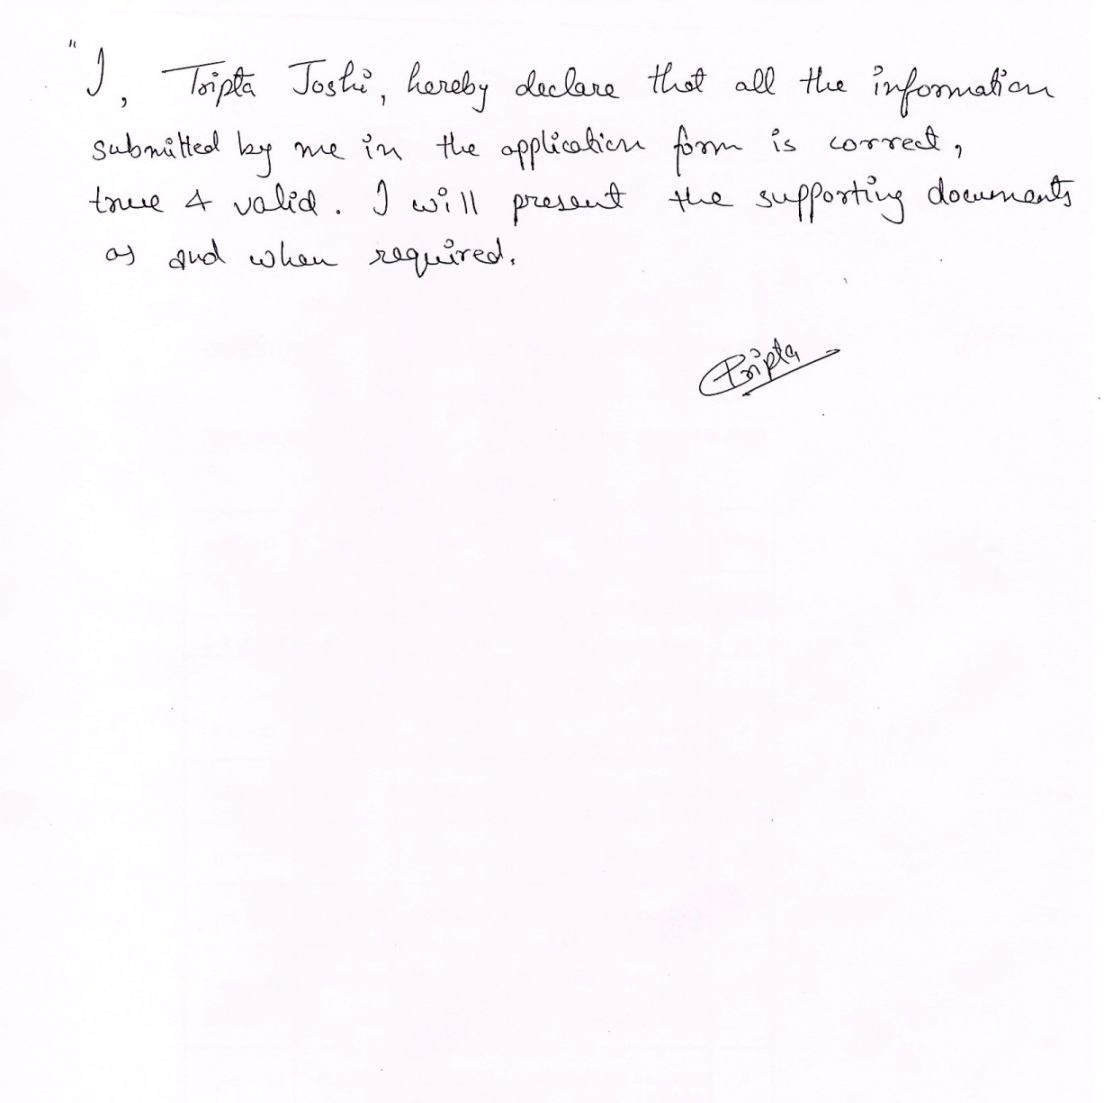 "I, Tripta Joshi, hereby declare that all the information
submitted by me in the application form is correct,
true & valid. I will present the supporting documents
as and when required.
Tripta